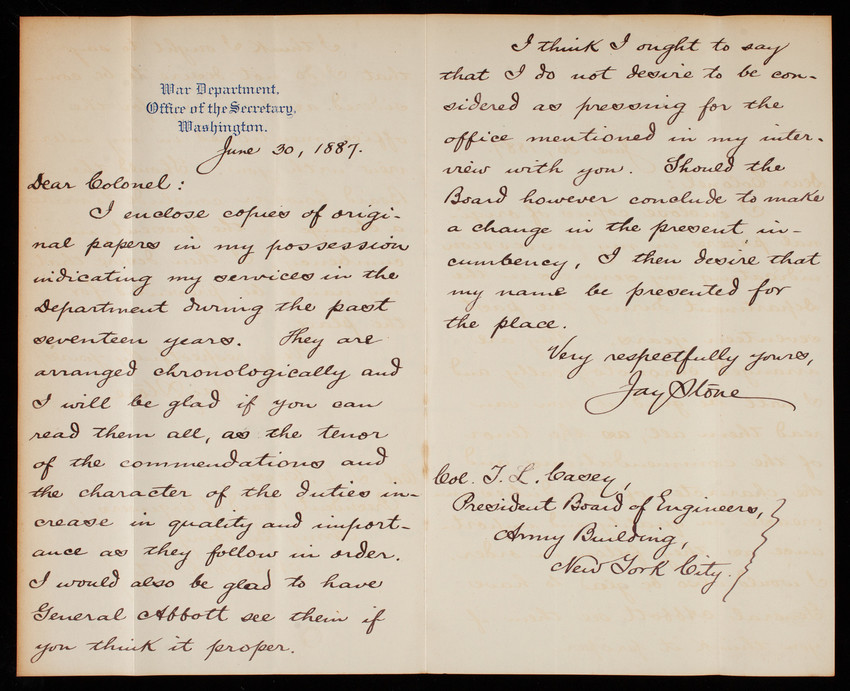 War Department.
Office of the Secretary,
Washington.
June 30, 1887.
Dear Colonel:
I enclose copies of origi-
nal papers in my possession
indicating my services in the
Department during the past
seventeen years. They are
arranged chronologically and
I will be glad if you can
read them all, as the tenor
of the commendations and
the character of the duties in-
crease in quality and import-
ance as they follow in order.
I would also be glad to have
General Abbott see them if
you think it proper.
I think I ought to say
that I do not desire to be con-
sidered as pressing for the
office mentioned in my inter-
view with you. Should the
Board however conclude to make
a change in the present in-
cumbency, I then desire that
my name be presented for
the place.
Very respectfully yours,
Jay Stone
Col. T. L. Casey,
President Board of Engineers,
Army Building,
New York City.